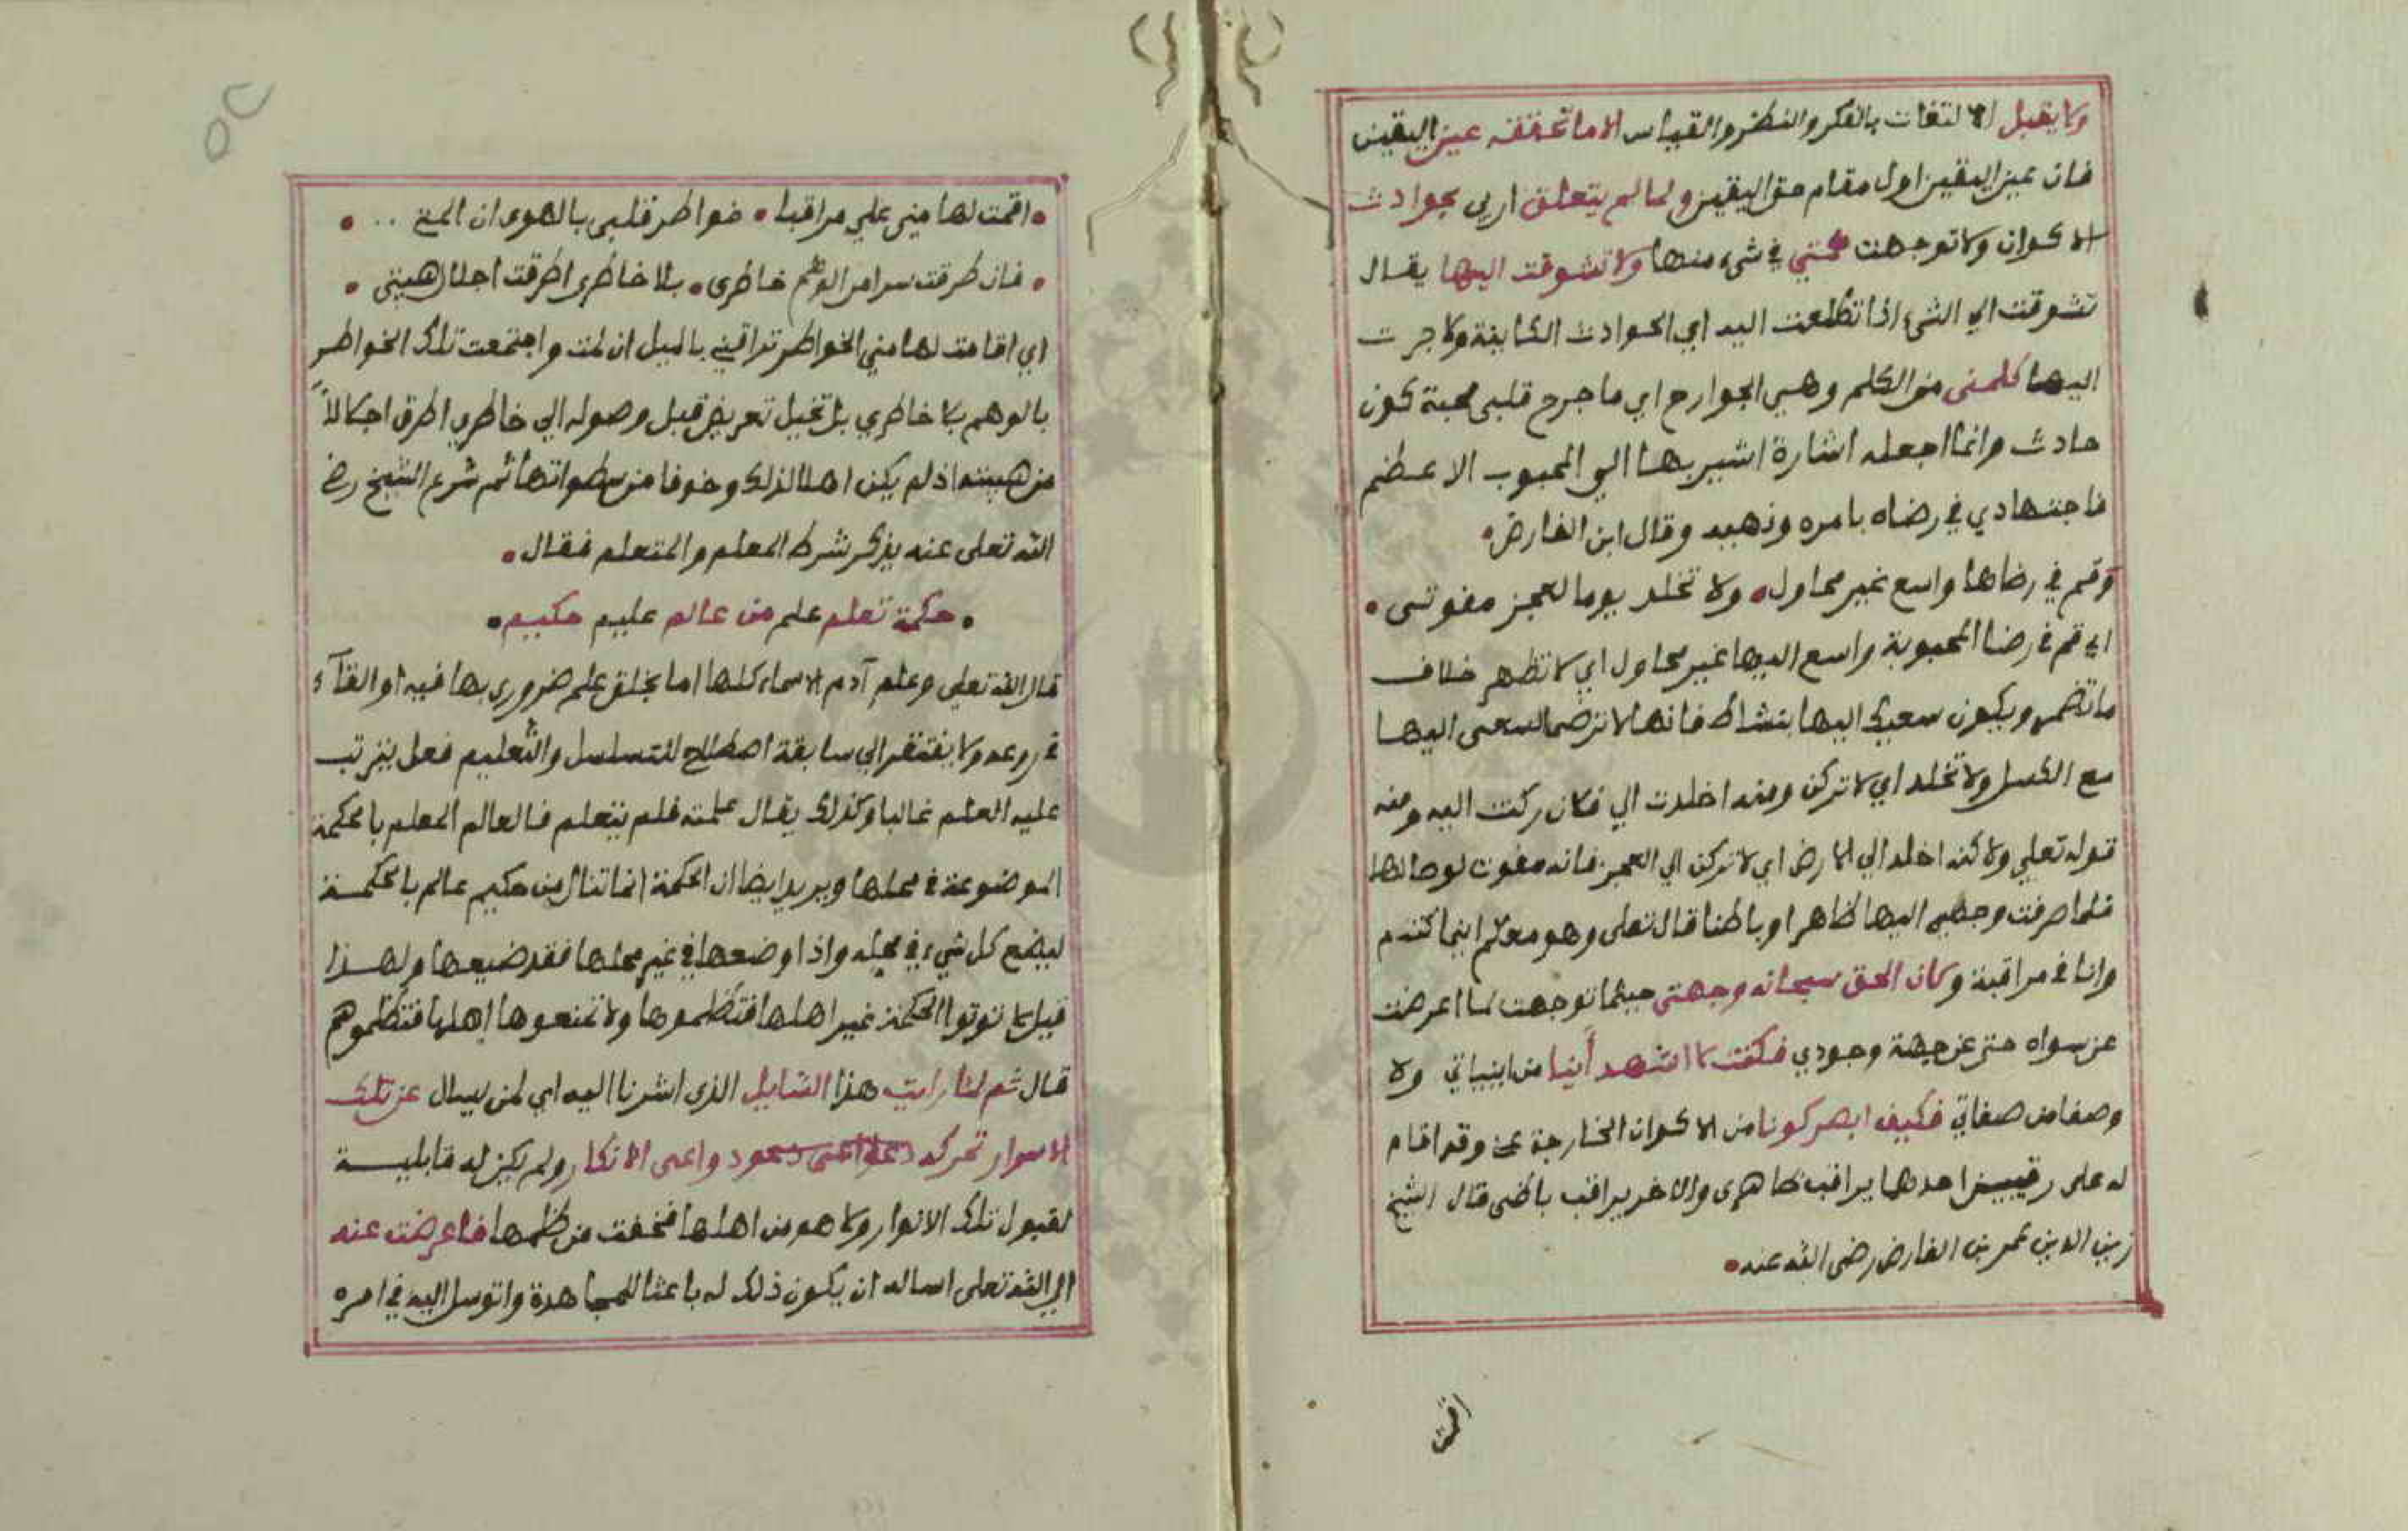 ولا يقبل الالتفات بالفكر والنظر والقياس الا ما تحققه عين اليقين
فان عين اليقين اول مقام حق اليقين ولما لم يتعلق اربي بحوادث
الاكوان ولا توجهت همتي في شيء منها ولا تشوقت اليها يقال
تشوقت الي الشيء اذا تطلعت اليه اي الحوادث الكاينة ولا جرت
اليها كلمتي من الكلم وهي الجوارح اي ما جرح قلبي محبة كون
حادث وانما اجعله اشارة اشير بها الي المحبوب الاعظم
فاجتهادي في رضاه بامره ونهيه وقال ابن الفارض
وقم في رضاها واسع غير محاول ولا تخلد يوما لعجز مفوتى
اي قم في رضا المحبوبة واسع اليها غير محاول اي لا تظهر خلاف
ما تضمر ويكون سعيك اليها بنشاط فانها لا ترضي السعى اليها
مع الكسل ولا تخلد اي لا تركن ومنه اخلدت الي فلان ركنت اليه ومنه
قوله تعلي ولاكنه اخلد الي الارض اي لا تركن الي العجز فانه مفوت لوصالها
فلما صرفت وجهي اليها ظاهرا وباطنا قال تعلى وهو معكم اينما كنتم
وانا في مراقبة وكان الحق سبحانه وجهتي حيثما توجهت لما اعرضت
عن سواه حتى عن جهة وجودي فكنت لا اشهد أينا من اينياتي ولا
وصفا من صفاتي فكيف ابصر كونا من الاكوان الخارجة عني وقد اقام
له على رقيبين احدهما يراقب ظاهرى والاخر يراقب باطنى قال الشيخ
زين الدين عمر بن الفارض رضى الله عنه
اقمت
٥٢
اقمت لها مني علي مراقبا خواطر قلبي بالهوى ان المت
فان طرقت سرا من الوهم خاطرى بلا خاطرى اطرقت اجلال هيبتى
اي اقامت لها مني الخواطر تراقبني بالميل ان لمت واجتمعت تلك الخواطر
بالوهم بلا خاطري بل تخيل تعريض قبل وصوله الي خاطري اطرق اجلالاً
من هيبته اذ لم يكن اهلا لذلك وخوفا من سطواتها ثم شرع الشيخ رضي
الله تعلى عنه يذكر شرط المعلم والمتعلم فقال
حكمة تعلم علم من عالم عليم حكيم
قال الله تعلى وعلم آدم الاسماء كلها اما بخلق علم ضروري بها فيه او القآء
في روعه ولا يفتقر الي سابقة اصطلاح للتسلسل والتعليم فعل يترتب
عليه العلم غالبا وكذلك يقال علمته فلم يتعلم فالعالم المعلم بالحكمة
الموضوعة في محلها ويريد ايضا ان الحكمة انما تنال من حكيم عالم بالحكمة
ليضع كل شيء في محله واذا وضعها في غير محلها فقد ضيعها ولهذا
قيل لا توتوا الحكمة غير اهلها فتظلموها ولا تمنعوها اهلها فتظلموهم
قال ثم لما رايت هذا السايل الذى اشرنا اليه اي لمن يسال عن تلك
الاسرار تحركه واعى الانكار ولم يكن له قابلية
لقبول تلك الانوار ولا هو من اهلها فخفت من ظلمها فاعرضت عنه
الي الله تعلى اساله ان يكون ذلك له باعثا للمجاهدة واتوسل اليه في امره